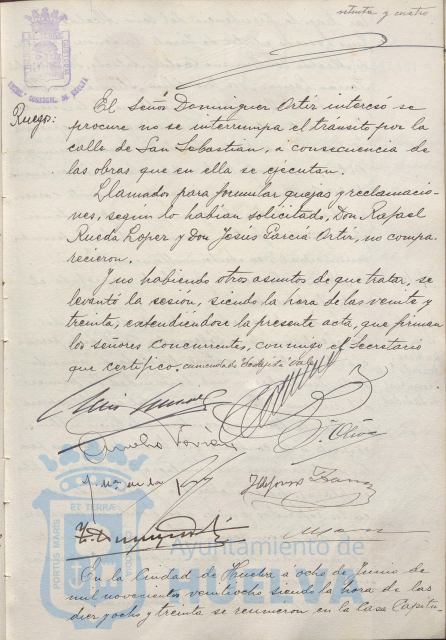 setenta y cuatro
Ruego:
El Señor Dominguez Ortiz interesó se
procure no se interrumpa el tránsito por la
calle de San Sebastián, a consecuencia de
las obras que en ella se ejecutan.
Llamados para formular quejas y reclamacio-
nes, segun lo habian solicitado, Don Rafael
Rueda Lopez y Don Jesús Garcia Ortiz, no compa-
recieron.
Y no habiendo otros asuntos de que tratar, se
levantó la sesion, siendo la hora de las veinte y
treinta, extendiéndose la presente acta, que firman
los señores concurrentes, conmigo el Secretario
que certifico.
ET TERRAE
PORTUS MARIS
Ayuntamiento de
HUELVA
En la Ciudad de Huelva a ocho de Junio de
mil novecientos veintiocho siendo la hora de las
diez y ocho y treinta se reunieron en la Casa Capitu-